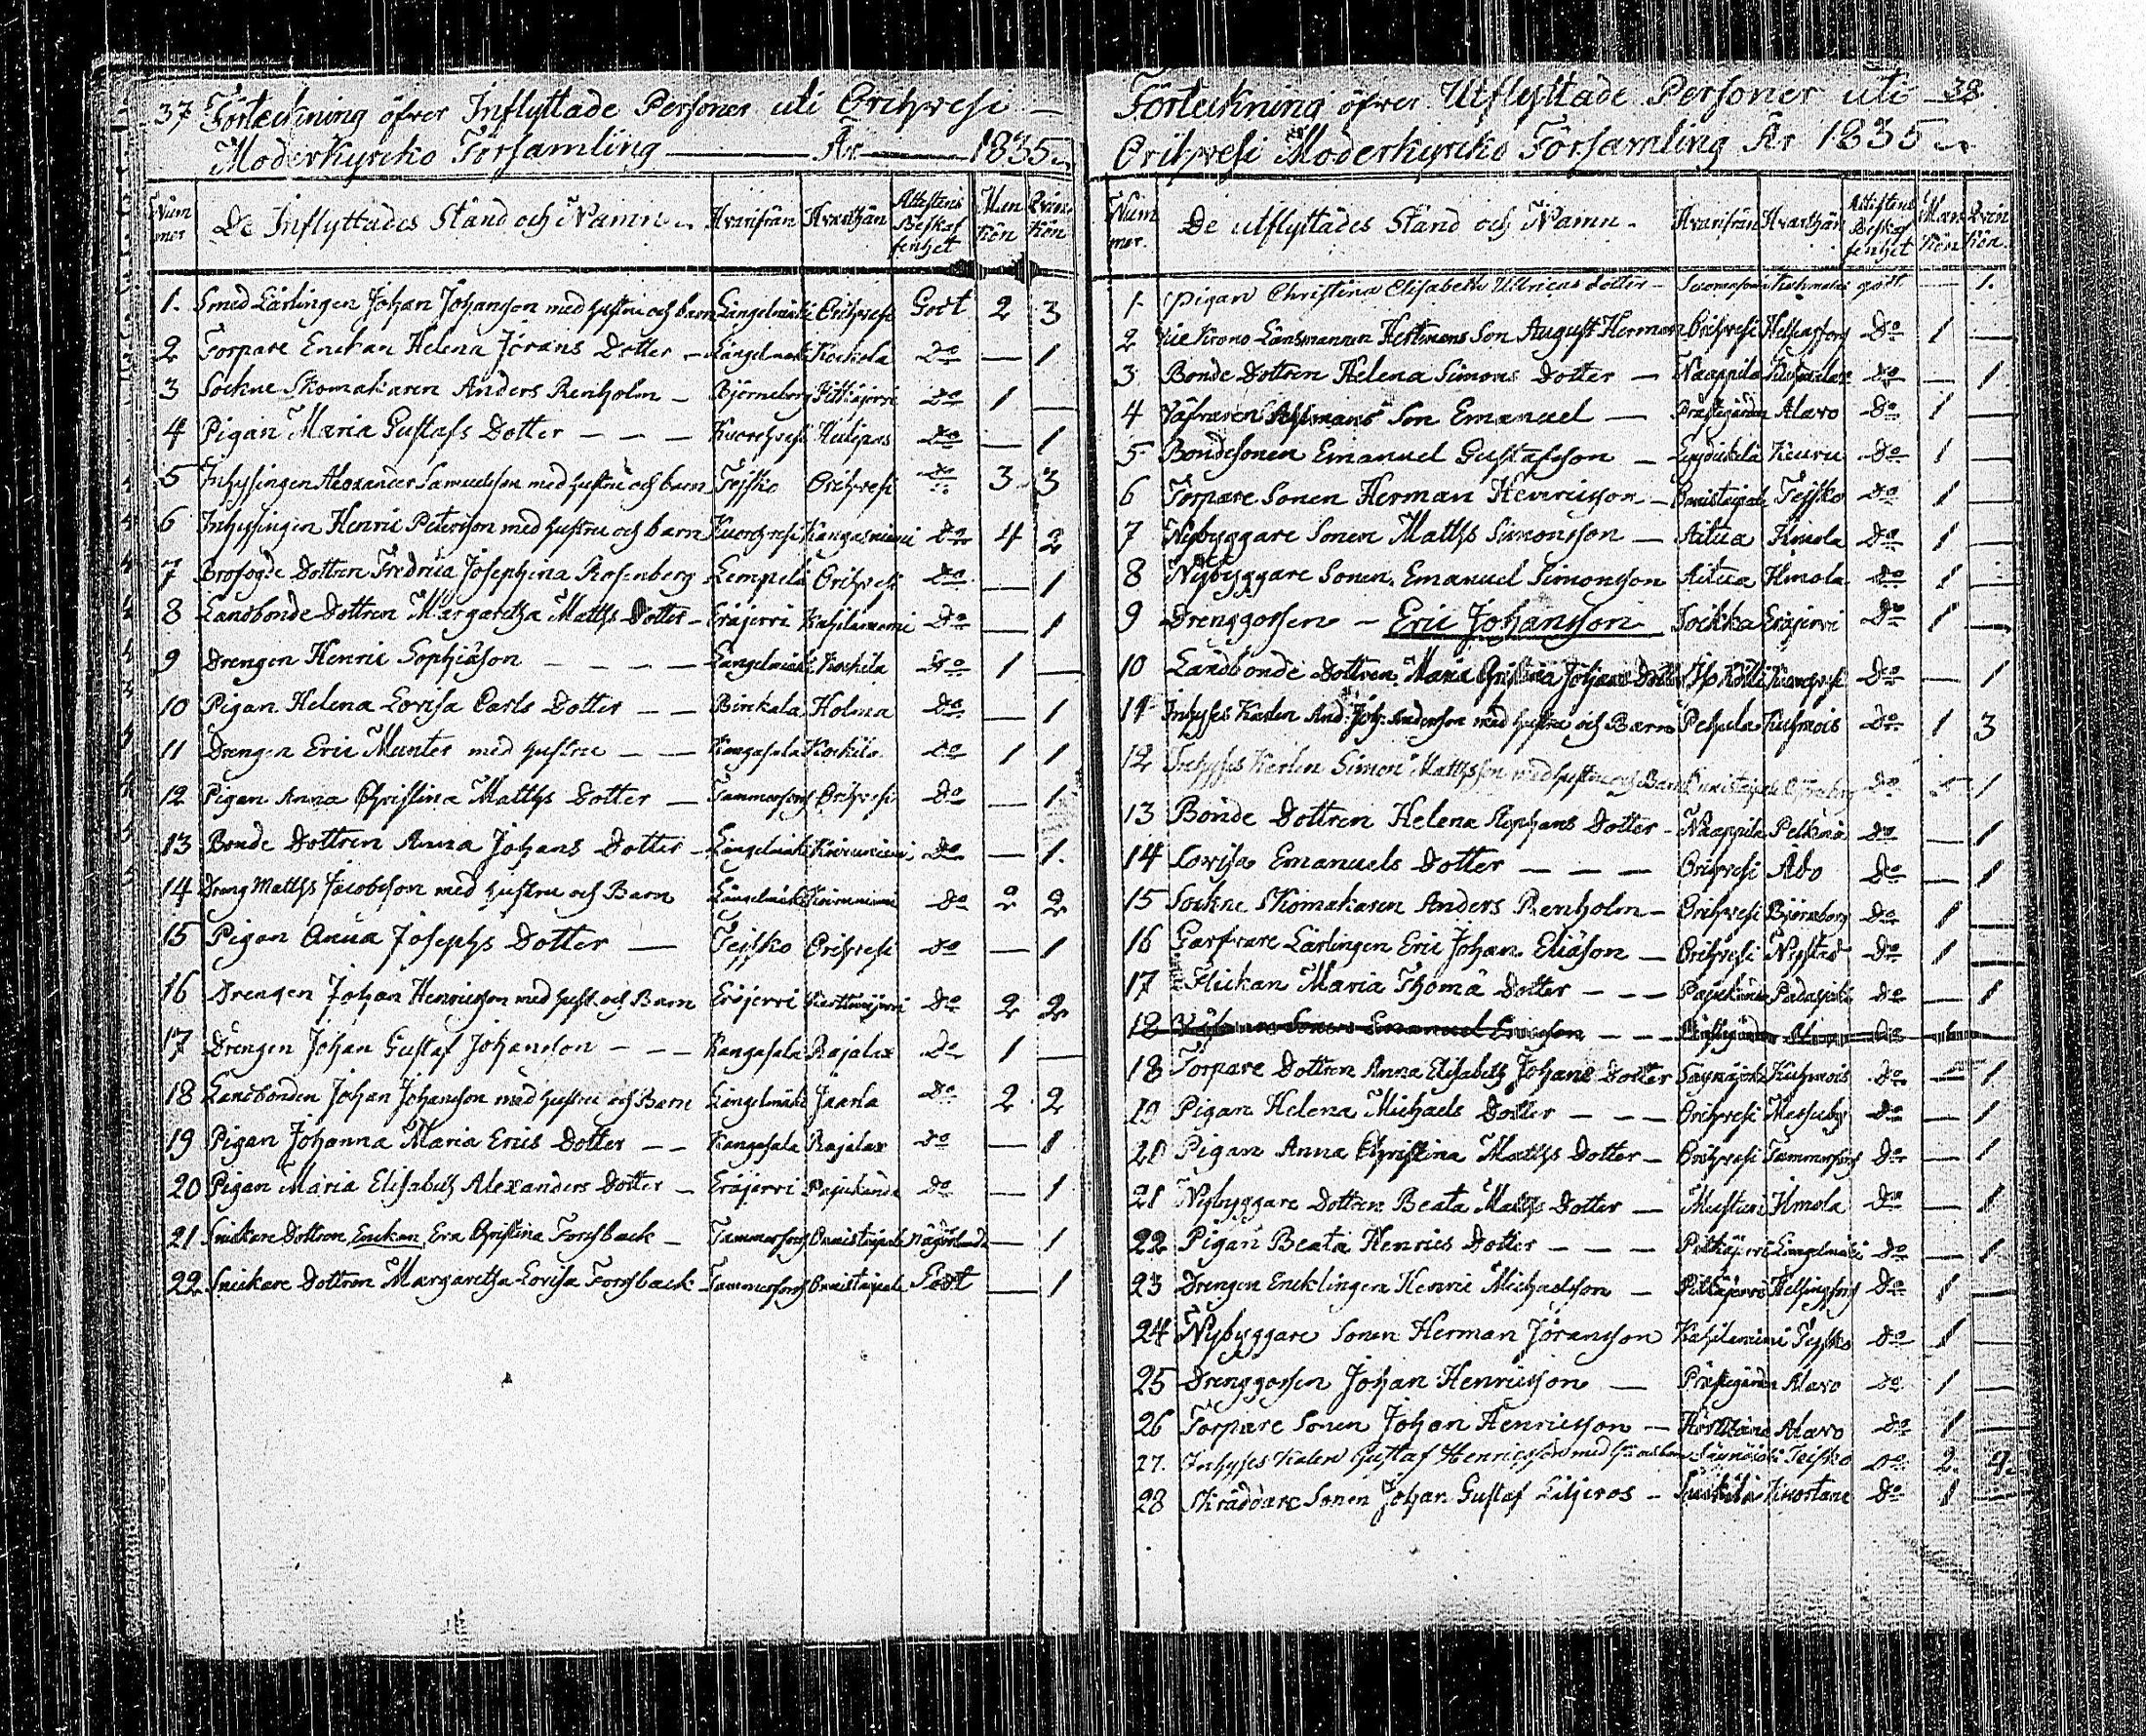 37 Förteckning öfver Inflyttade Personer uti Orihvesi
Moderkyrcko Församling År 1835
Num mer De Inflyttades Stånd och Namn Hvarifrån Hvarthän Attestens Beskaf fenhet Men Kön Qvin Kön
1. Smed Lärlingen Johan Johanson med hustru och barn Längelmäki Orihvesi Godt 2 3
2 Torpare Enckan Helena Jörans Dotter Längelmäki Kockola Do 1
3 Sockne Skomakaren Anders Renholm Björneborg Pitkäjervi Do 1
4 Pigan Maria Gustafs Dotter Kuorehvesi Do 1
5 Inhysingen Alexander Samuelsson med hustru och barn Tejsko Orihvesi Do 3 3
6 Inhysingen Henric Petersson med hustru och barn Kuorehvesi Kangasniemi Do 4 2
7 Brofogde Dottren Fredrica Josephina Rosenberg Lempelä Orihvesi Do 1
8 Landbonde Dottren Margaretha Matths Dotter Eräjervi Do 1
9 Drengen Henric Sophiäson Längelmäki Kockila Do 1
10 Pigan Helena Lovisa Carls Dotter Birckala Holma Do 1
11 Drengen Eric Munter med hustru Kangasala Kockila Do 1 1
12 Pigan Anna Christina Matths Dotter Tammerfors Orihvesi Do 1
13 Bonde Dottren Anna Johans Dotter Längelmäki Koivuniemi Do 1
14 Dreng Matths Jacobsson med hustru och Barn Längelmäki Koivuniemi Do 2 2
15 Pigan Anna Josephs Dotter Tejsko Orihvesi Do 1
16 Drengen Johan Henricsson med hust. och Barn Eräjervi Do 2 2
17 Drengen Johan Gustaf Johansson Kangasala Rajalax Do 1
18 Landbonden Johan Johansson med hustru och Barn Längelmäki Jaarla Do 2 2
19 Pigan Johanna Maria Erics Dotter Kangasala Rajalax Do 1
20 Pigan Maria Elisabeth Alexanders Dotter Eräjervi Pajukanda Do 1
21 Snickare Dottren Enckan Eva Christina Forsback Tammerfors Onnistaipale 1
22 Snickare Dottren Margaretha Lovisa Forsback Tammerfors Onnistaipale Godt 1
Förteckning öfver Utflyttade Personer uti 38
Orihvesi Moderkyrcko Församling År 1835
Num mer. De utflyttades Stånd och Namn. Hvarifrån Hvarthän Attestens Beskaf fenhet Man Kön Qvin Kön
1. Pigan Christina Elisabeth Ullricas dotter godt 1.
2 Vice Krono Länsmannen Son August Herman Orihvesi Helsingfors Do 1
3 Bonde Dottren Helena Simons Dotter Naappila Do 1
4 Son Emanuel Prästgården Alavo Do 1
5 Bondesonen Emanuel Gustafsson Keuru Do 1
6 Torpare Sonen Herman Henricsson Onnistaipale Tejsko Do 1
7 Nybyggare Sonen Matths Simonsson Aitua Ilmola Do 1
8 Nybyggare Sonen Emanuel Simonsson Aitua Ilmola Do 1
9 Drenggossen Eric Johansson Eräjervi Do 1
10 Landbonde Dottren Maria Christina Johans Dotter Kuorehvesi Do 1
11 Inhyses Karlen And. Joh. Andersson med hustru och Barn Kuhmois Do 1 3
12 Inhyses Karlen Simon Mattsson med hustru och Barn Onnistaipale Do 1
13 Bonde Dottren Helena Stephans Dotter Naappila Pelkäne Do 1
14 Lovisa Emanuels Dotter Orihvesi Åbo Do 1
15 Sockne Skomakaren Anders Renholm Orihvesi Björneborg Do 1
16 Garfvare Lärlingen Eric Johan Eliäson Orihvesi Nystad Do 1
17 Flickan Maria Thomä Dotter Padasjoki Do 1
18 Emanuel Do 1
18 Torpare Dottren Anna Elisabeth Johans Dotter Säynäjoki Kuhmois Do 1
19 Pigan Helena Michaels Dotter Orihvesi Messuby Do 1
20 Pigan Anna Christina Matths Dotter Orihvesi Tammerfors Do 1
21 Nybyggare Dottren Beata Matths Dotter Ilmola Do 1
22 Pigan Beata Henrics Dotter Pitkäjervi Längelmäki Do 1
23 Drengen Encklingen Henric Michaelsson Pitkäjervi Helsingfors Do 1
24 Nybyggare Sonen Herman Jöransson Tejsko Do 1
25 Drenggossen Johan Henricsson Prästgården Alavo Do 1
26 Torpare Sonen Johan Henricsson Alavo Do 1
27. Inhyses Karlen Gustaf Henricsson med Säynäjoki Teisko Do 2. 4.
28 Skräddare Sonen Johan Gustaf Liljeros Kuortane Do 1